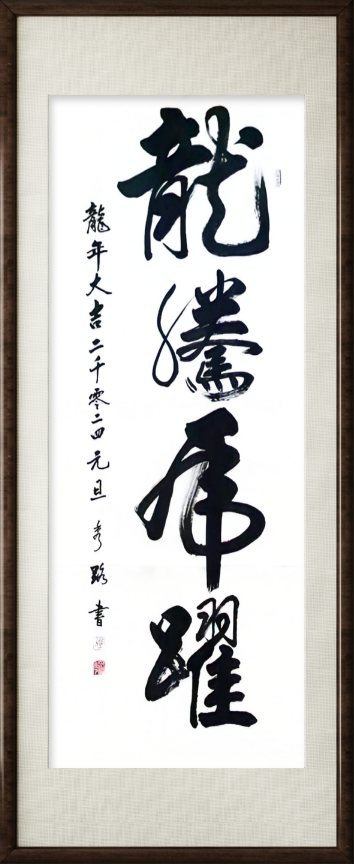 龍騰虎躍
龍年大吉二千零二四元旦秀路書